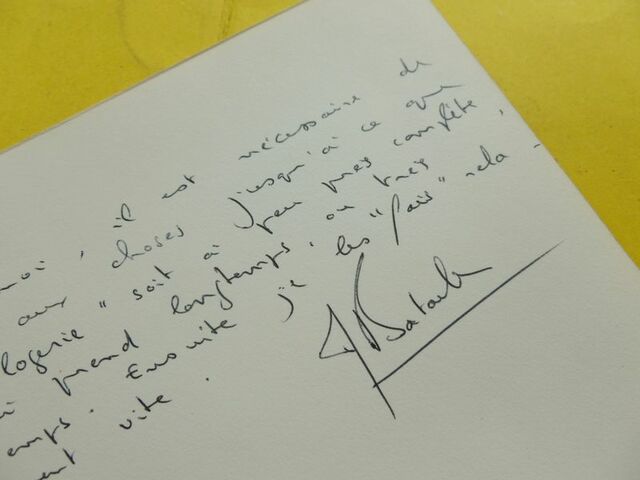 moi, il est nécessaire de
aux choses jusqu'à ce que
logerie" soit à peu près complète,
i prend longtemps, ou très
emps. Ensuite je les "fais" rela-
ent vite.